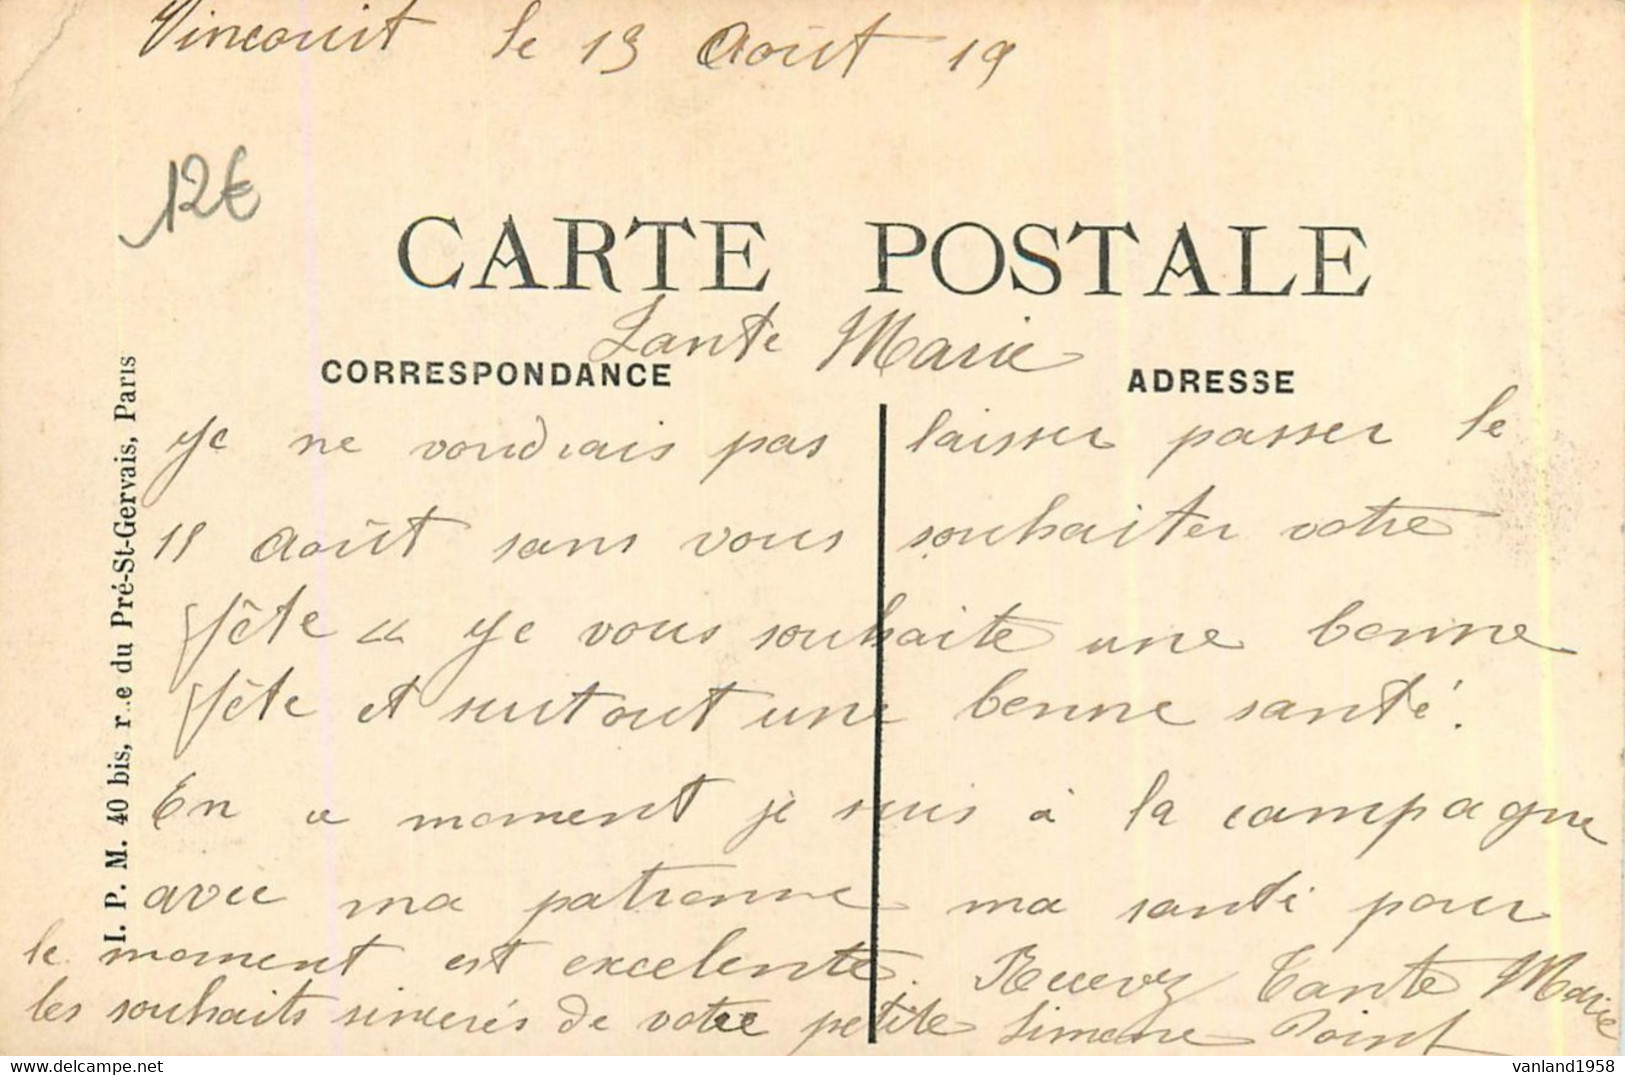 le 13 Août 19
12€
CARTE POSTALE
Tante Marie
CORRESPONDANCE
ADRESSE
Je ne voudrais pas laisser passer le
15 Août sans vous souhaiter votre
fête Je vous souhaite une bonne
fête et surtout une bonne santé.
En ce moment je suis à la campagne
avec ma patronne ma santé pour
le moment est excelente. Recevez Tante Marie
les souhaits sincerés de votre petite Simone Point
I. P. M. 40 bis, r..e du Pré-St-Gervais, Paris
vanland1958